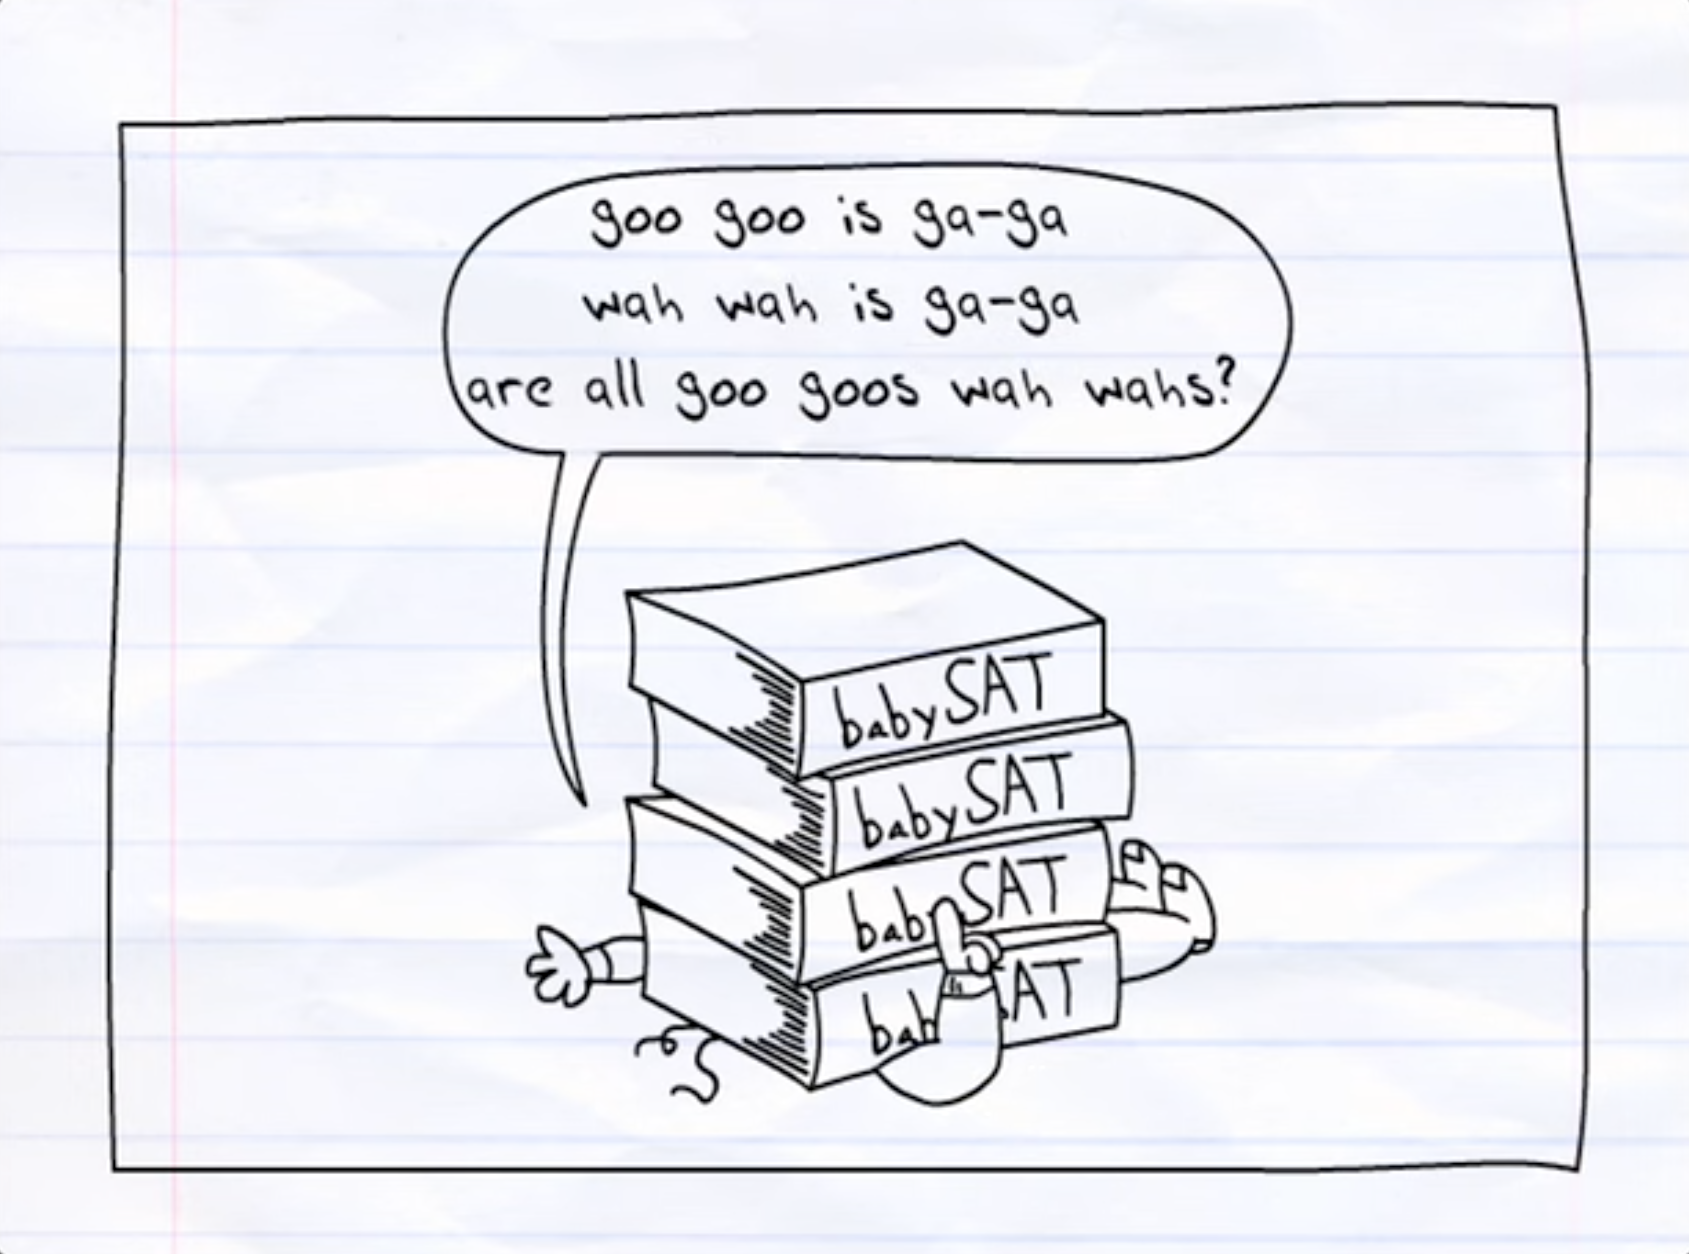 goo goo is ga-ga
wah wah is ga-ga
are all goo goos wah wahs?
baby SAT
baby SAT
baby SAT
bab AT